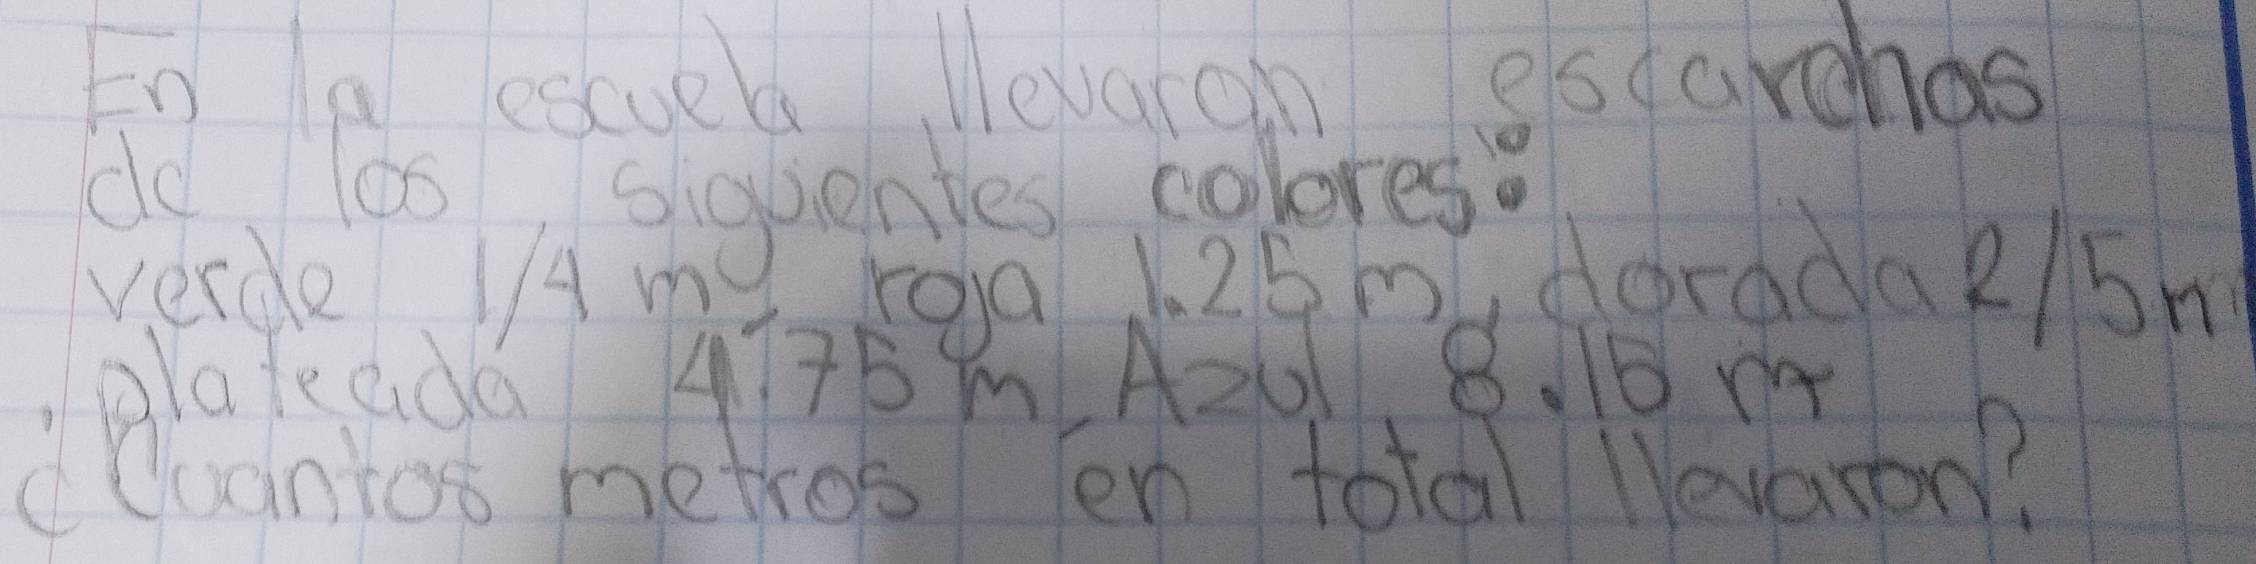 En la escuela llevaron escarchas
de los siguientes colores:
verde 1/4 my roja 1.25 m, dorada 2/5 m
plateada 4.75 m Azul 8.15 m
¿Cuantos metros en total llevaron?